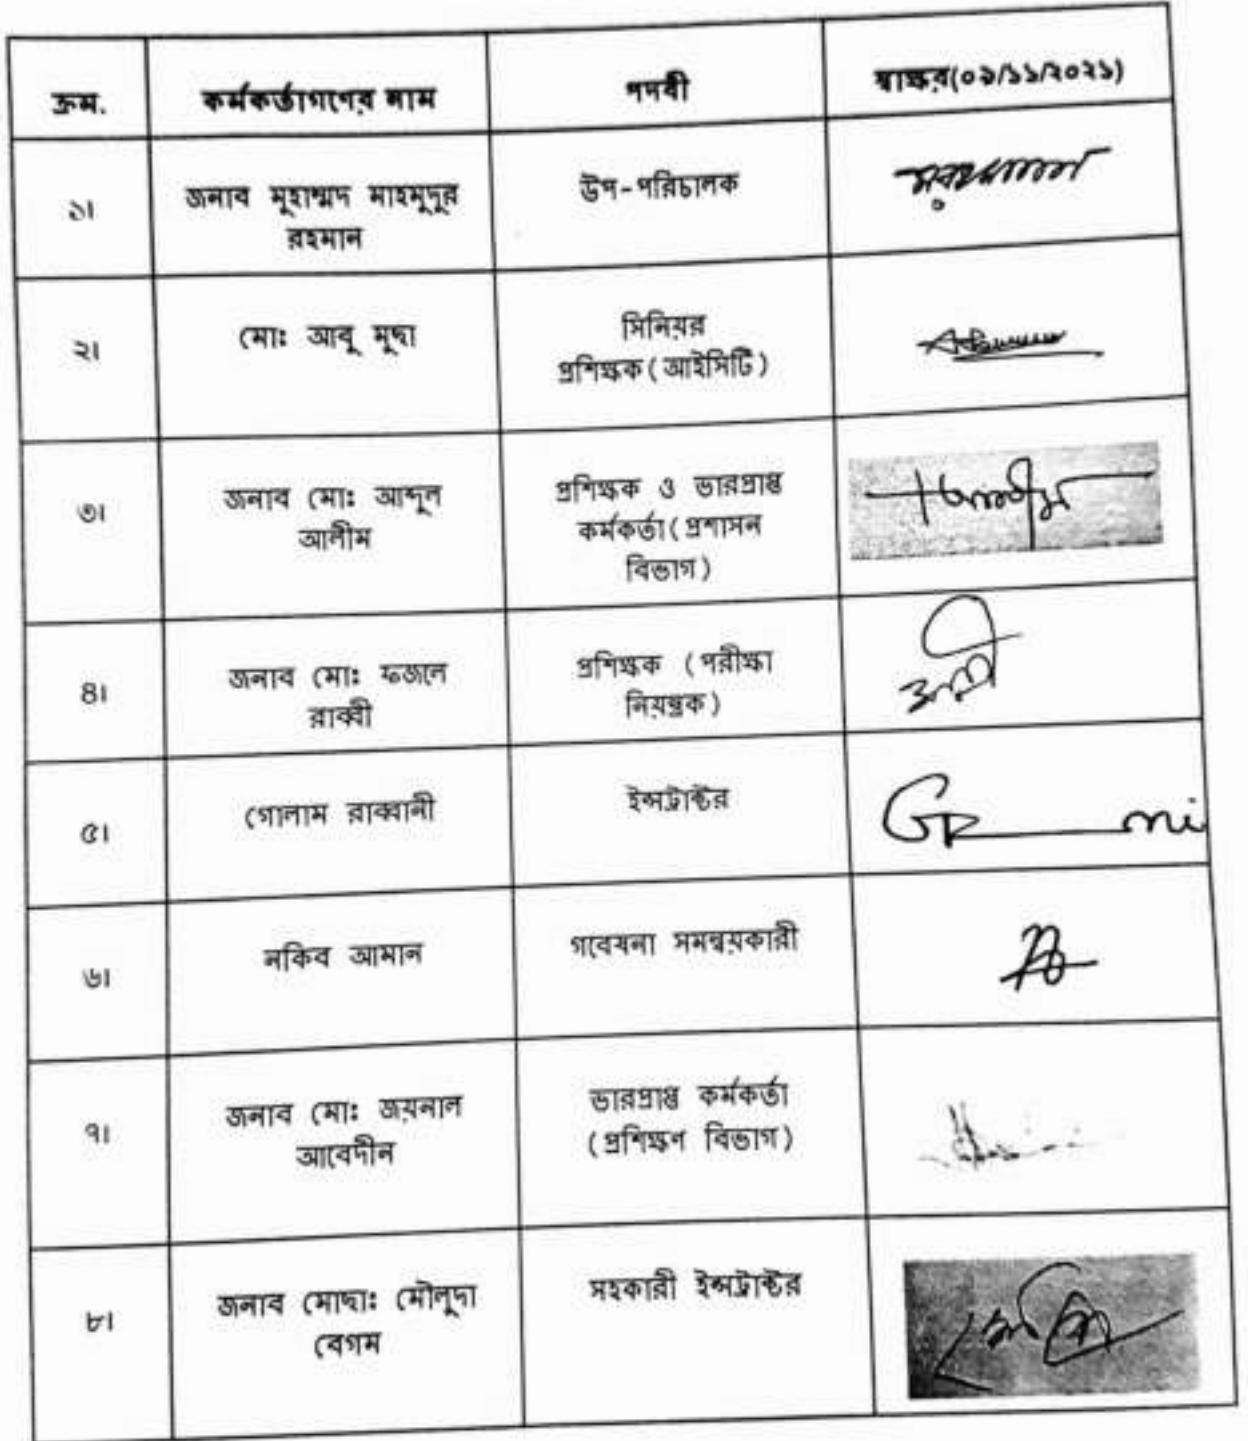 ক্রম.
কর্মকর্তাগণের নাম
পদবী
স্বাক্ষর(০৯/১১/২০২১)
১।
জনাব মুহাম্মদ মাহমুদুর
রহমান
উপ-পরিচালক
২।
মো: আবু মুছা
সিনিয়র
প্রশিক্ষক(আইসিটি)
৩।
জনাব মো: আব্দুল
আলীম
প্রশিক্ষক ও ভারপ্রাপ্ত
কর্মকর্তা(প্রশাসন
বিভাগ)
৪।
জনাব মো: ফজলে
রাব্বী
প্রশিক্ষক (পরীক্ষা
নিয়ন্ত্রক)
৫।
গোলাম রাব্বানী
ইন্সট্রাক্টর
৬।
নকিব আমান
গবেষনা সমন্বয়কারী
৭।
জনাব মো: জয়নাল
আবেদীন
ভারপ্রাপ্ত কর্মকর্তা
(প্রশিক্ষণ বিভাগ)
৮।
জনাব মোছা: মৌলুদা
বেগম
সহকারী ইন্সট্রাক্টর